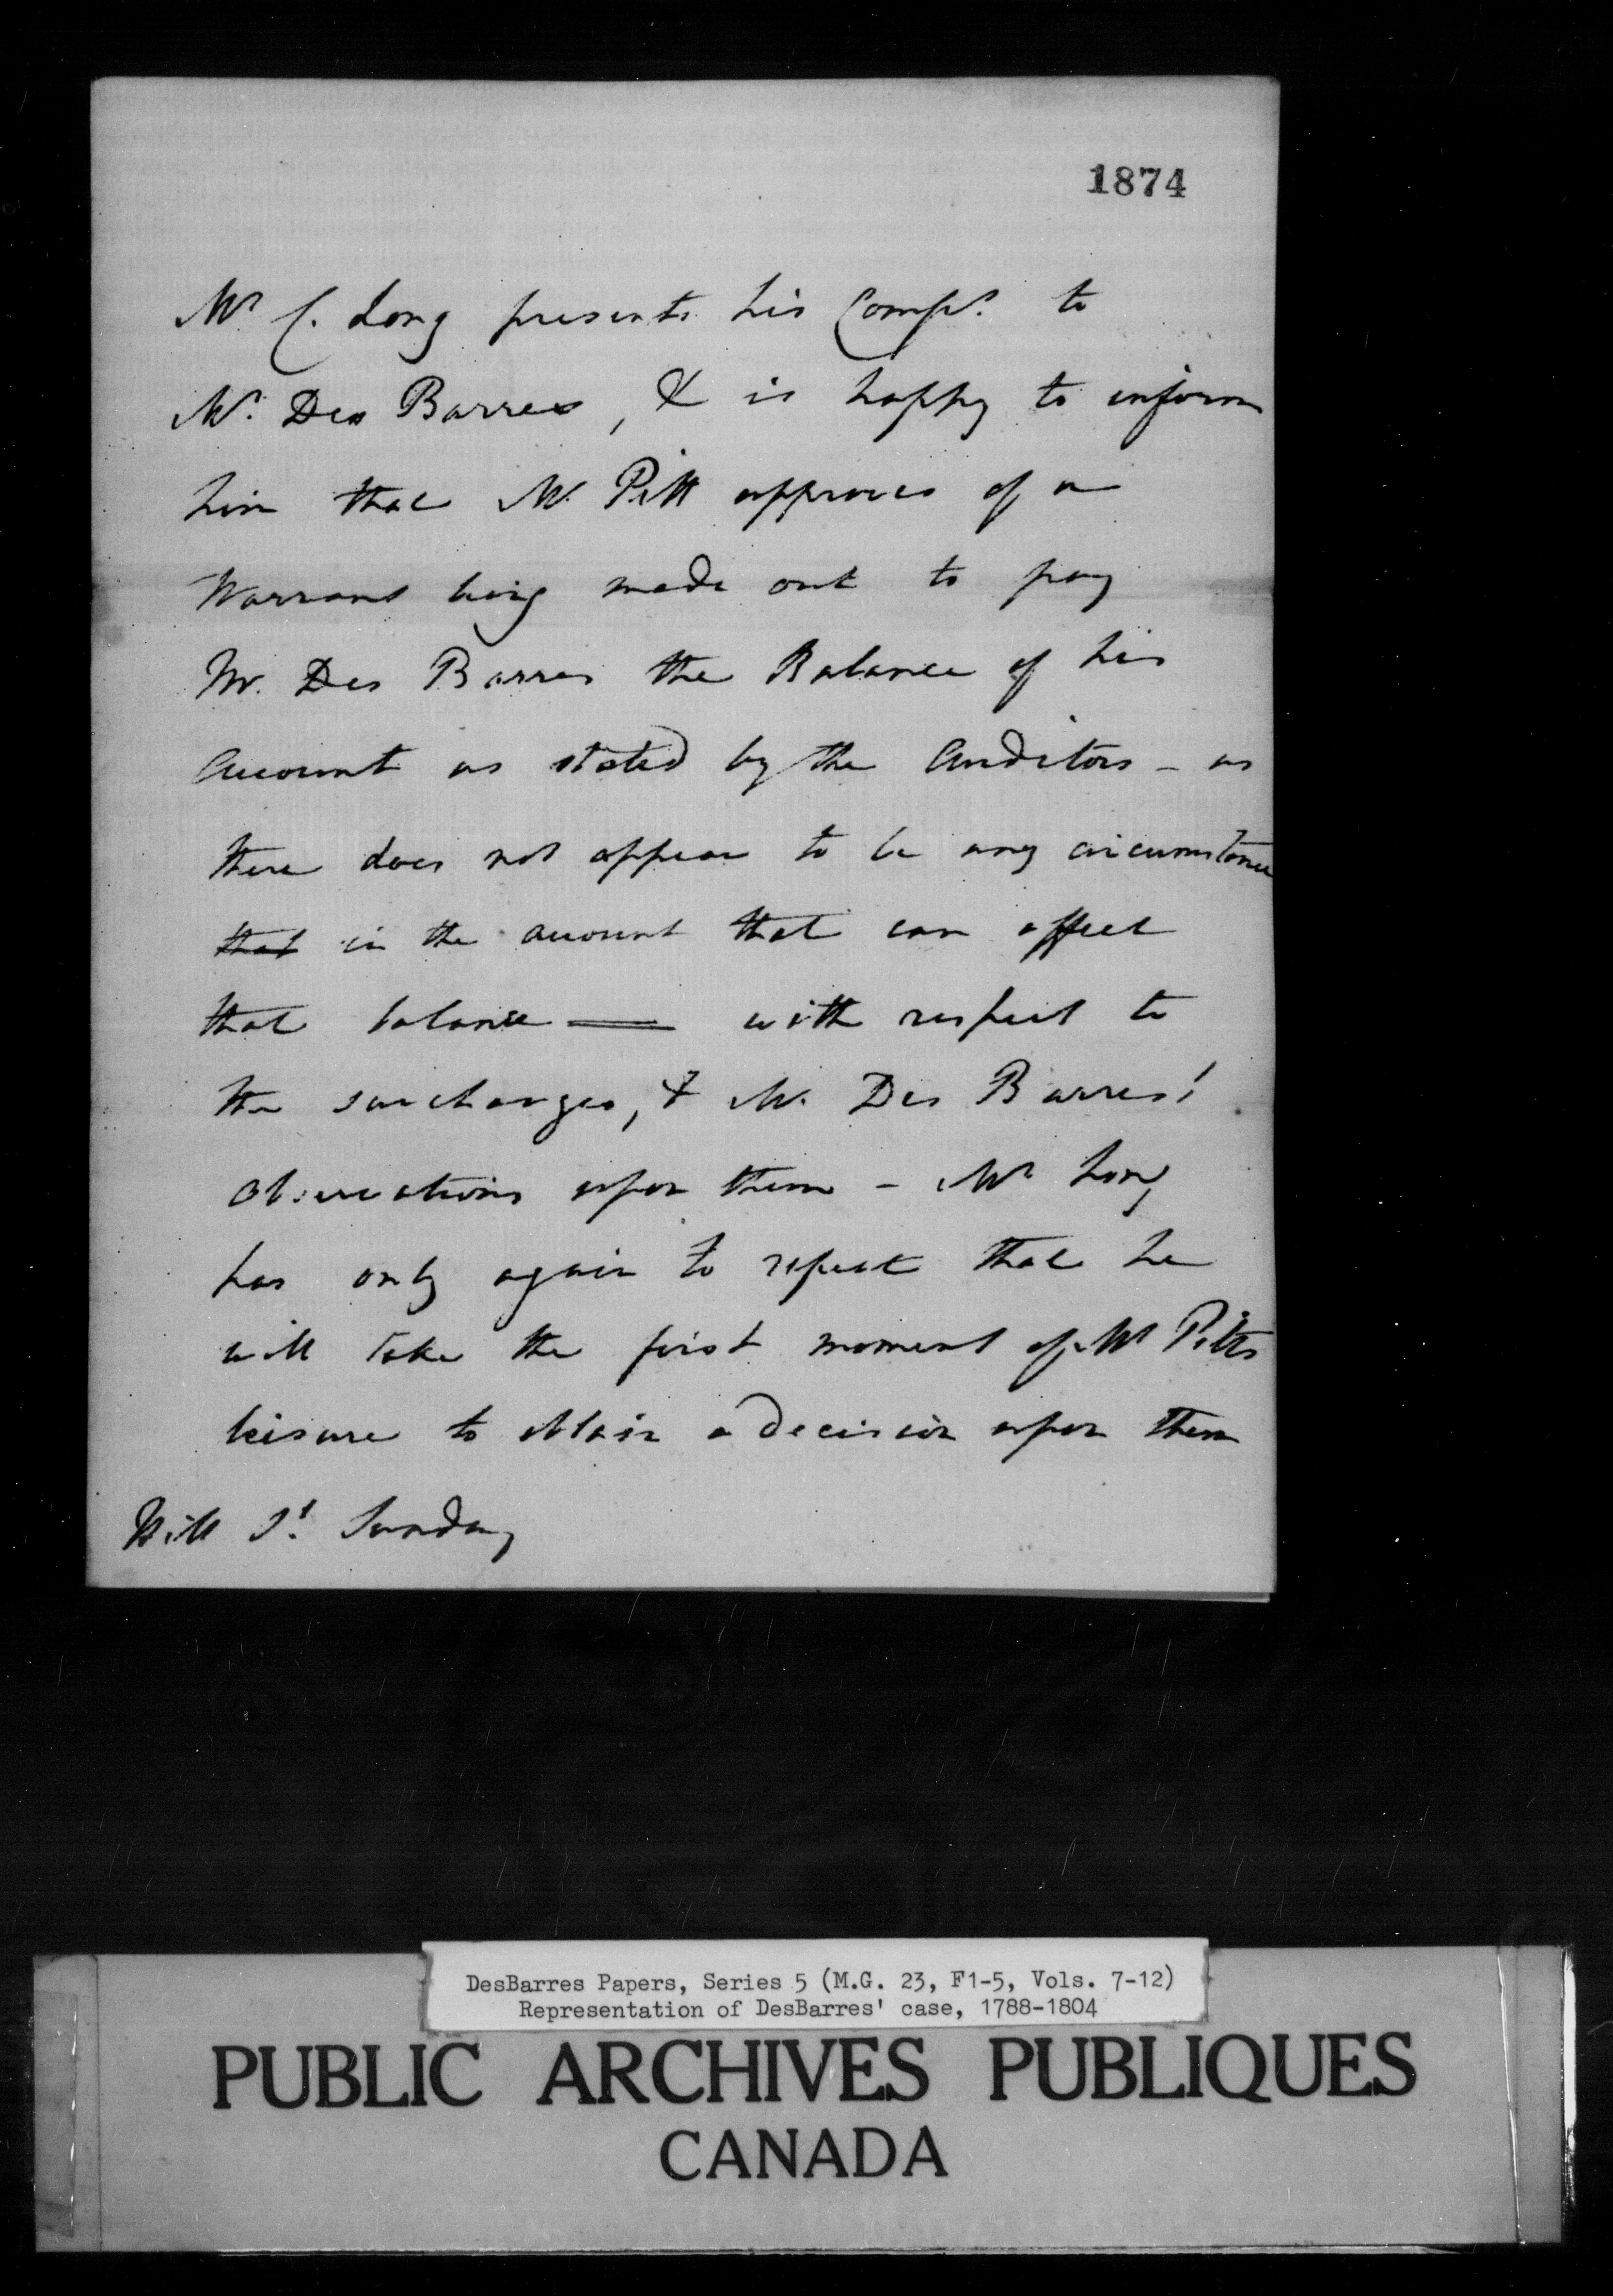 1874
Mr C. Long presents his Comps. to
Mr. Des Barres, & is happy to inform
him that Mr. Pitt approves of a
Warrant being made out to pay
Mr. Des Barres the Balance of his
Account as stated by the Auditors - as
there does not appear to be any circumstance
that in the account that can affect
that balance — with respect to
the surcharges, & Mr. Des Barres'
observations upon them - Mr Long
has only again to repeat that he
will take the first moment of Mr Pitts
leisure to obtain a decision upon them
Hill St. Sunday
DesBarres Papers, Series 5 (M.G. 23, F1-5, Vols. 7-12)
Representation of DesBarres' case, 1788-1804
PUBLIC ARCHIVES PUBLIQUES
CANADA